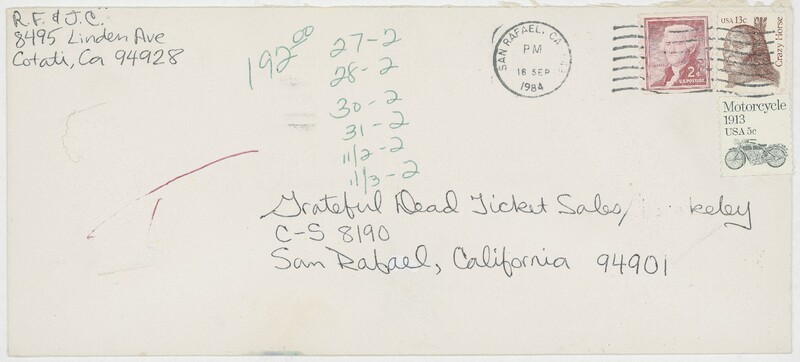 R.F. & J.C.
8495 Linden Ave
Cotati, Ca 94928
192.00
27-2
28-2
30-2
31-2
11/2-2
11/3-2
SAN RAFAEL, CA
PM
18 SEP
1984
2¢
U.S. POSTAGE
USA 13c
Crazy Horse
Motorcycle
1913
USA 5c
Grateful Dead Ticket Sales/ keley
C-S 8190
San Rafael, California 94901